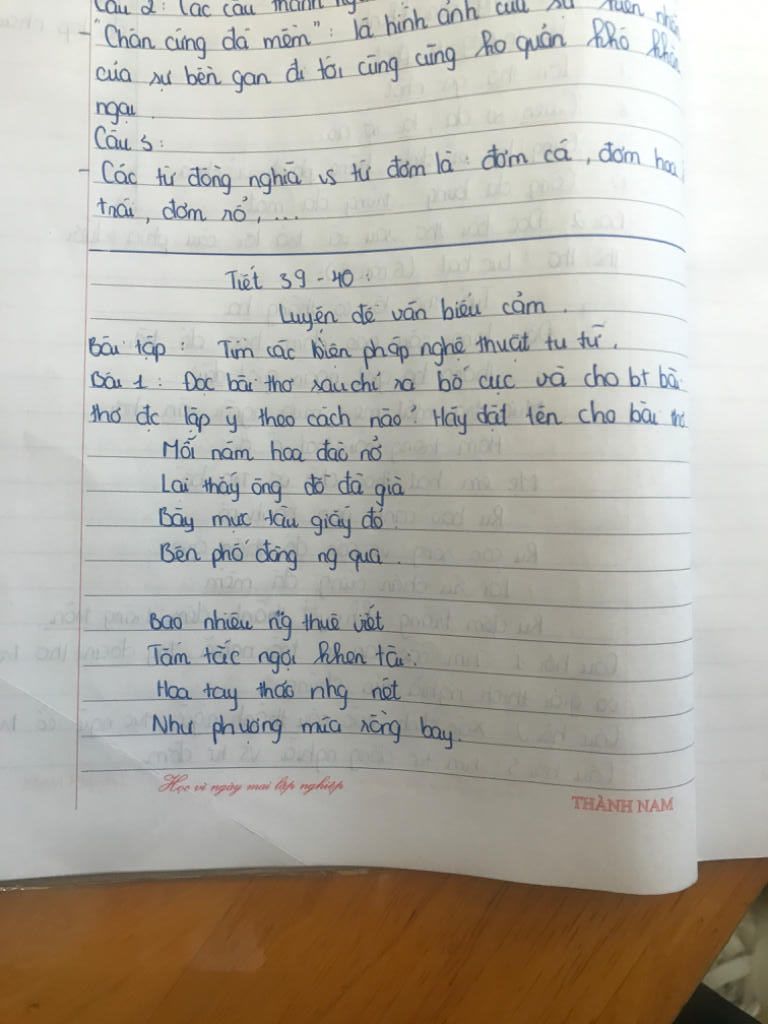 Câu 2: Các câu thành ng
- "Chân cứng đá mềm": là hình ảnh của sự kiên nhẫn
của sự bền gan đi tới cùng cùng ko quản khó khăn
ngại.
Câu 3:
- Các từ đồng nghĩa vs từ đơm là: đơm cá, đơm hoa
trái, đơm nở,...
Tiết 39-40:
Luyện đề văn biểu cảm.
Bài tập: Tìm các biện pháp nghệ thuật tu từ.
Bài 1: Đọc bài thơ sau chỉ ra bố cục và cho bt bài
thơ đc lập ý theo cách nào? Hãy đặt tên cho bài thơ
Mỗi năm hoa đào nở
Lại thấy ông đồ đã già
Bày mực tàu giấy đỏ
Bên phố đông ng qua.
Bao nhiêu ng thuê viết
Tấm tắc ngợi khen tài.
Hoa tay thảo nhg nét
Như phượng múa rồng bay.
Học vì ngày mai lập nghiệp
THÀNH NAM